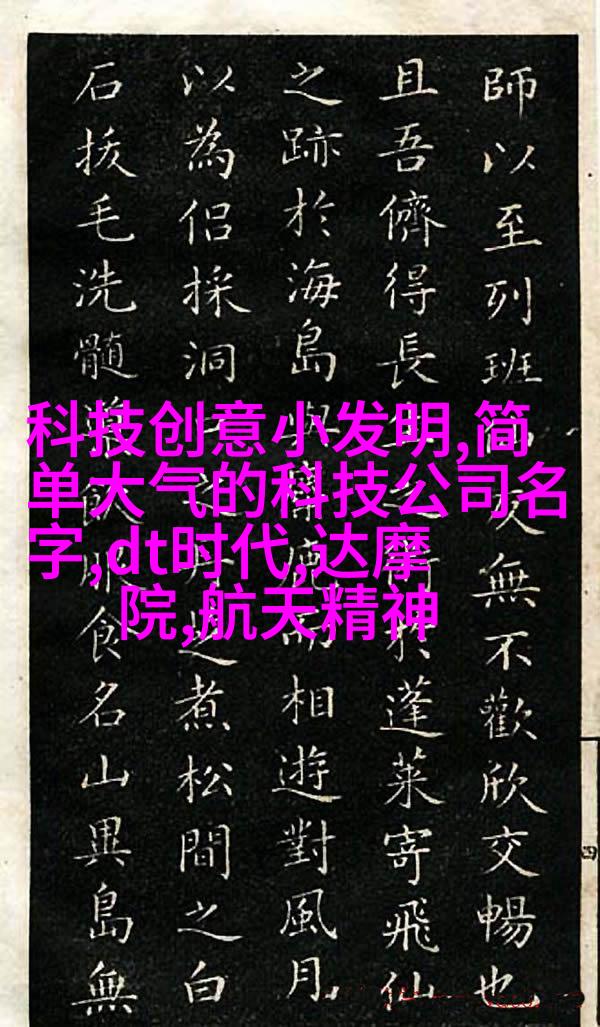 師以至列班友無不歡欣交暢也
且吾儕得長於蓬萊寄飛仙
之跡於海島與而相遊對風月
以為侶採洞丹之煮松間之白
石拔毛洗髓飲食名山異島無
科技创意小发明,简
单大气的科技公司名
字,dt时代,达摩
院,航天精神